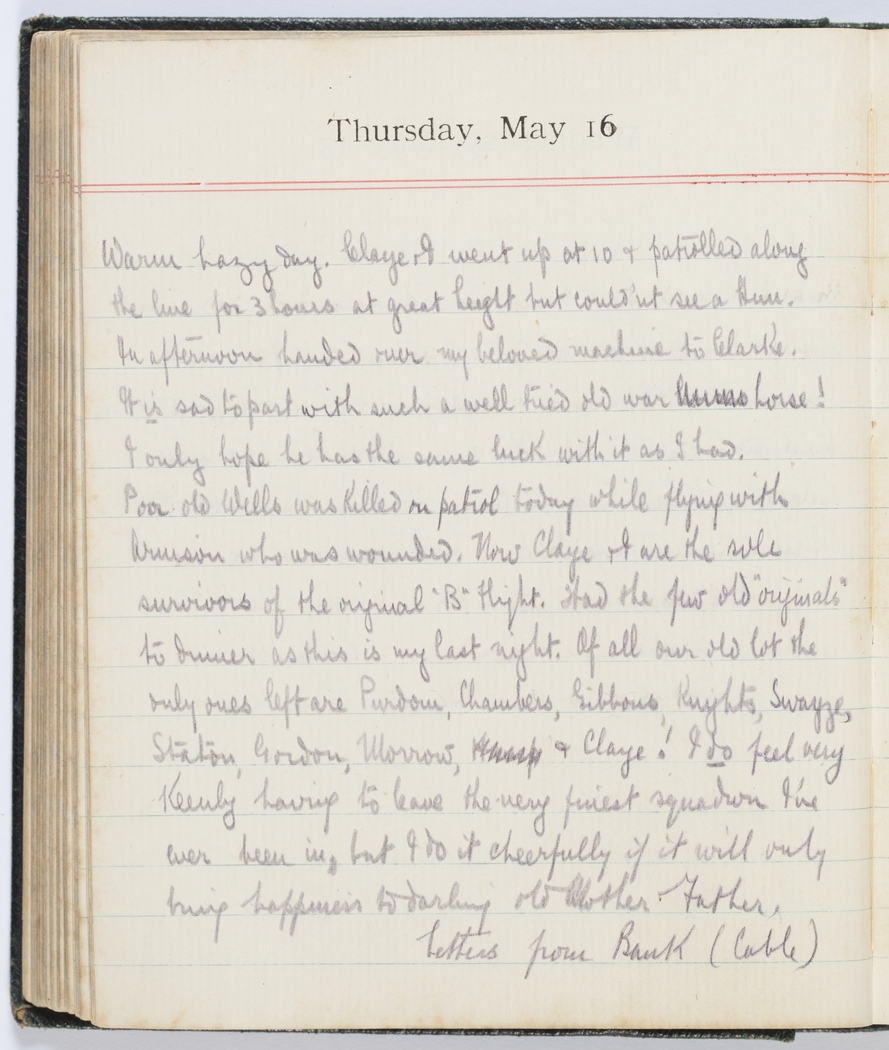 Thursday, May 16
Warm hazy day. Claye & I went up at 10 & patrolled along
the line for 3 hours at great height but could'nt see a Hun.
In afternoon handed over my beloved machine to Clarke.
It is sad to part with such a well tried old war horse!
I only hope he has the same luck with it as I had.
Poor old Wells was killed on patrol today while flying with
Armison who was wounded. Now Claye & I are the sole
survivors of the original "B" flight. Had the few old "originals"
to dinner as this is my last night. Of all our old lot the
only ones left are Purdom, Chambers, Gibbons, Knights, Swayze,
Staton, Gordon, Morrow, & Claye! I do feel very
keenly having to leave the very finest squadron I've
ever been in, but I do it cheerfully if it will only
bring happiness to darling old Mother & Father.
Letters from Bank (Cable)